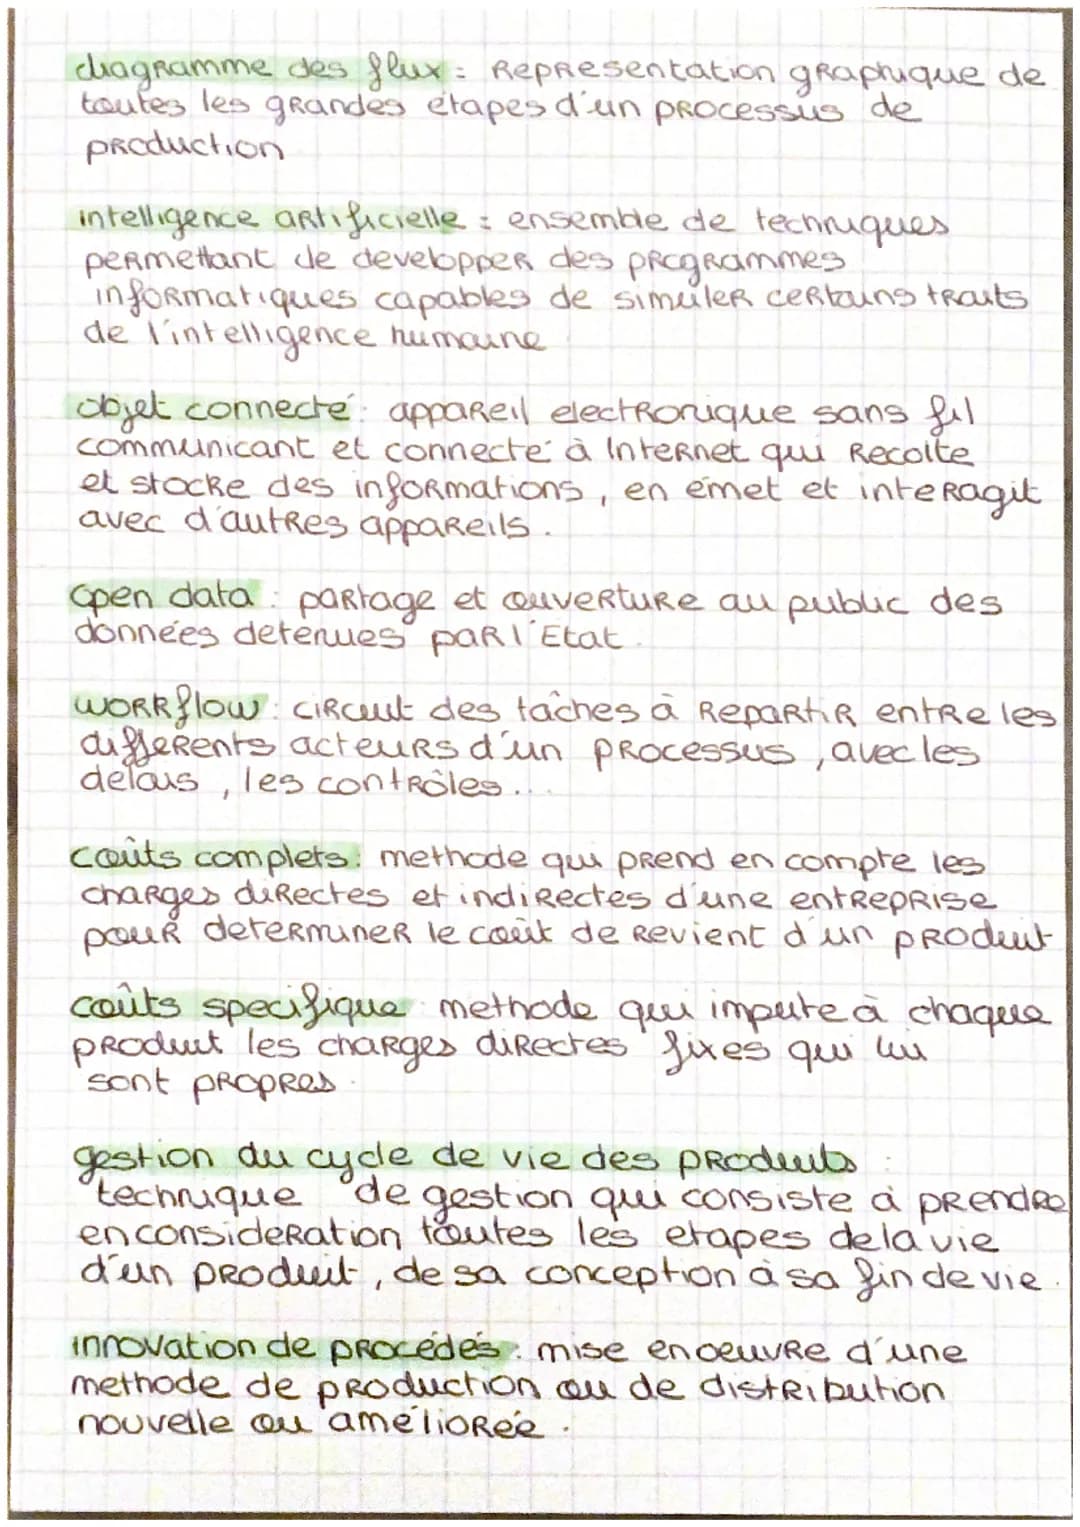 diagramme des flux : Representation graphique de
toutes les grandes étapes d'un processus de
production
intelligence artificielle : ensemble de techniques
permettant de developper des programmes
informatiques capables de simuler certains traits
de l'intelligence humaine
objet connecté : appareil electronique sans fil
communicant et connecté à Internet qui Recolte
et stocke des informations, en émet et interagit
avec d'autres appareils.
open data : partage et ouverture au public des
données detenues par l'Etat.
workflow : circuit des tâches à Repartir entre les
differents acteurs d'un processus, avec les
delais, les contrôles...
coûts complets : methode qui prend en compte les
charges directes et indirectes d'une entreprise
pour determiner le coût de Revient d'un produit
coûts specifique : methode qui impute à chaque
produit les charges directes fixes qui lui
sont propres.
gestion du cycle de vie des produits :
technique de gestion qui consiste à prendre
en consideration toutes les etapes de la vie
d'un produit, de sa conception à sa fin de vie.
innovation de procédés : mise en oeuvre d'une
methode de production ou de distribution
nouvelle ou améliorée.